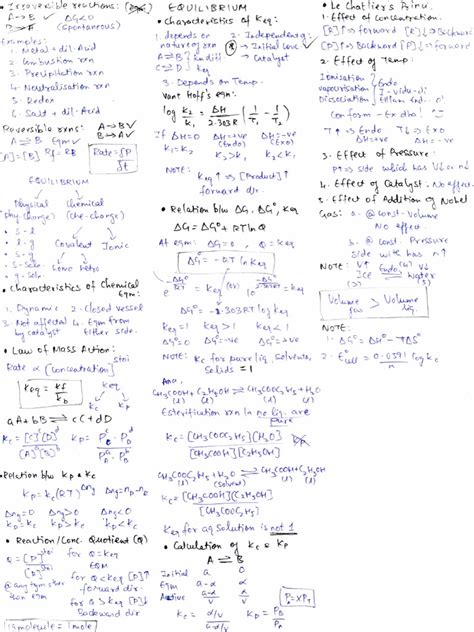 • Irreversible reactions:
A→B ✓ ΔG<0
B→A (Spontaneous)
Examples:
1. Metal + dil. Acid
2. Combustion rxn
3. Precipitation rxn
4. Neutralisation rxn
5. Redox
6. Salt + dil. Acid
Reversible rxns: A→B ✓
A⇌B Eqm ✓ B→A ✓
[A]=[B] Rf = Rb
EQUILIBRIUM
Physical Chemical
(phy. change) (che. change)
• s-l
• l-g
• s-g Covalent Ionic
• s-soln.
• g-soln.
• Characteristics of Chemical
Eqm:
1. Dynamic 2. Closed vessel
3. Not affected 4. Eqm from
by catalyst either side.
• Law of Mass Action:
Rate ∝ [Concentration]^stoi
Keq = kf/kb
Keq
Kc Kp
aA+bB ⇌ cC+dD
Kc = [C]^c[D]^d / [A]^a[B]^b
• Relation b/w Kp & Kc
Kp = Kc(RT)^Δng
Δng=0 Δng>0 Δng<0
Kp=Kc Kp>Kc Kp<Kc
• Reaction/Conc. Quotient (Q)
for Q=Keq
EQM
for Q<Keq [P]↑
forward dir.
for Q>Keq [P]↓
Backward dir
1g molecule = 1 mole
EQUILIBRIUM
• Characteristics of Keq:
1. depends on
nature of rxn
2. Independent:
→ Initial Conc
→ Catalyst
A⇌B
C⇌D
3. Depends on Temp.
Vant Hoff's eqn:
log K2/K1 = ΔH/2.303R (1/T1 − 1/T2)
If ΔH=0 ΔH=+ve ΔH=-ve
(Endo) (Exo)
K1=K2 K2>K1 K2<K1
NOTE:
Keq ↑ ⇒ [Product]↑
forward dir.
• Relation b/w ΔG, ΔG°, Keq
ΔG = ΔG° + RT ln Q
At eqm: ΔG=0, Q=Keq
ΔG° = -RT ln Keq
e^-ΔG°/RT = Keq (or) 10^-ΔG°/2.303RT = Keq
ΔG° = -2.303RT log Keq
Keq=1 Keq>1 Keq<1
ΔG°=0 ΔG°=-ve ΔG°=+ve
NOTE: Kc for pure liq, solvents,
Solids = 1
CH3COOH+C2H5OH ⇌ CH3COOC2H5+H2O
(l) (l) (l) (l)
Esterification rxn in no liq. are
pure
Kc = [CH3COOC2H5][H2O] / [CH3COOH][C2H5OH]
CH3COOC2H5+H2O ⇌ CH3COOH+C2H5OH
(l) (solvent) (l) (l)
Kc = [CH3COOH][C2H5OH] / [CH3COOC2H5]
Keq for aq Solution is not 1
• Calculation of Kc & Kp
A ⇌ B
Initial a 0
Eqm a-α α
Active a-α/v α/v
• Le Chatliers Prin:
1. Effect of Concentration.
[R]↑ ⇒ forward [R]↓ ⇒ Backward
[P]↑ ⇒ Backward [P]↓ ⇒ forward
2. Effect of Temp:
Ionisation
vapourisation
Dissociation
T↑ ⇒ Endo T↓ ⇒ Exo
ΔH=+ve ΔH=-ve
3. Effect of Pressure:
P↑ ⇒ side which has V↓ or n↓
4. Effect of Catalyst: No effect.
5. Effect of Addition of Nobel
Gas: a. @ const. Volume
No effect.
b. @ const. Pressure
side with has n↑
Ice ⇌ Water
Volume gas > Volume liq.
NOTE:
1. ΔG° = ΔH° - TΔS°
2. E°cell = 0.0591/n log Kc